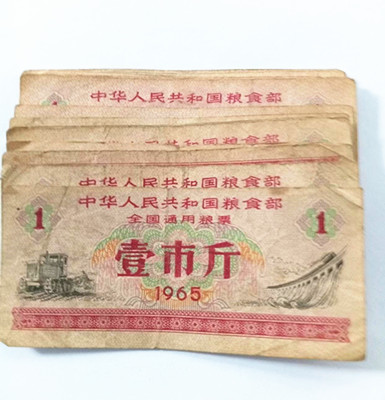 中华人民共和国粮食部
1
中华人民共和国粮食部
中华人民共和国粮食部
中华人民共和国粮食部
全国通用粮票
1 1
壹市斤
1965